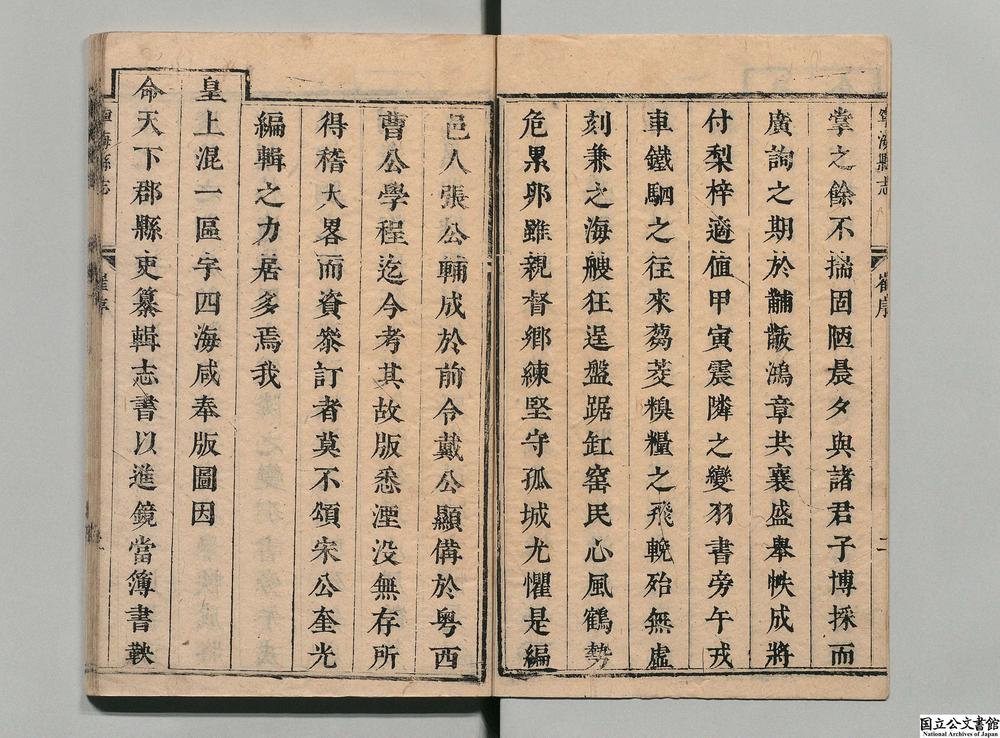 寧海縣志 崔序 二
掌之餘不揣固陋晨夕與諸君子博採而
廣詢之期於黼黻鴻章共襄盛舉帙成將
付梨梓適值甲寅震隣之變羽書旁午戎
車鐵駟之往來芻茭糗糧之飛輓殆無虛
刻兼之海艘狂逞盤踞缸窑民心風鶴勢
危累卵雖親督鄉練堅守孤城尤懼是編
邑人張公輔成於前令戴公顯偹於粵西
曹公學程迄今考其故版悉湮没無存所
得稽大畧而資叅訂者莫不頌宋公奎光
編輯之力居多焉我
皇上混一區宇四海咸奉版圖因
命天下郡縣吏纂輯志書以進鏡當簿書鞅
寧海縣志 崔序
国立公文書館
National Archives of Japan